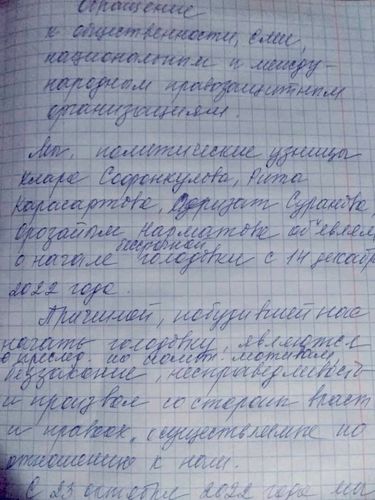 Обращение
к общественности, сми,
национальным и между-
народным правозащитным
организациям.
Мы, политические узницы
Клара Сооронкулова, Рита
Карасартова, Перизат Суранова,
Орозайым Нарматова объявляем
бессрочной
о начале голодовки с 14 декабря
2022 года.
Причиной, побудившей нас
начать голодовку являются
преслед. по полит. мотивам,
беззаконие, несправедливость
и произвол со стороны власт
и правоох, осуществляемые по
отношению к нам.
С 23 октября 2022 года мы